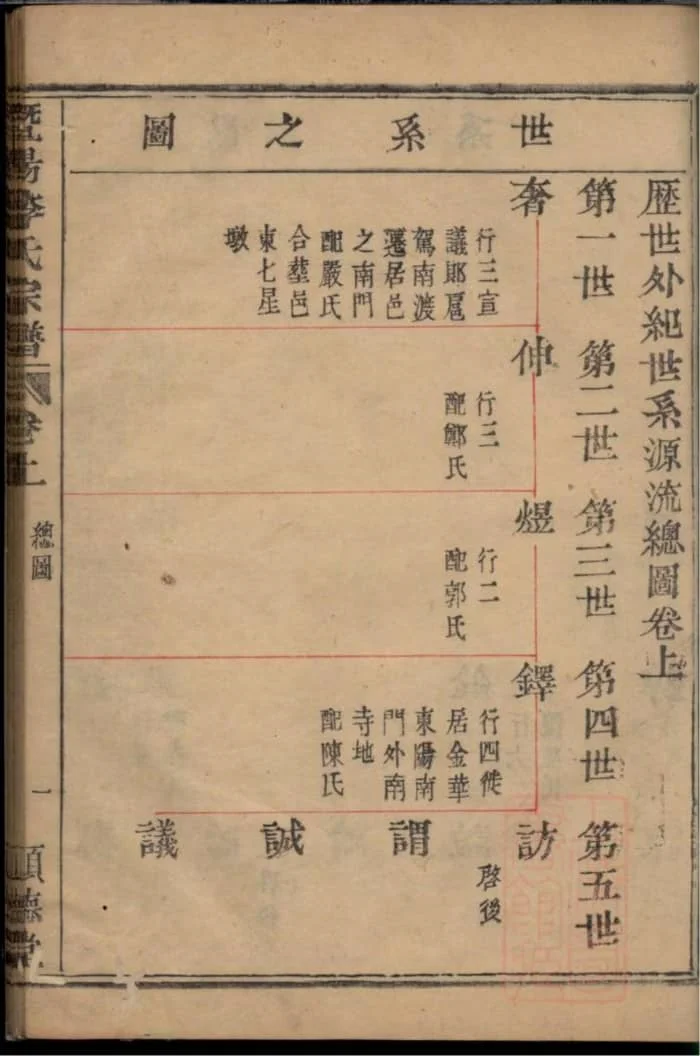 世系之圖
歷世外紀世系源流總圖卷上
第一世
第二世
第三世
第四世
第五世
奢
行三宣
議郎扈
駕南渡
遷居邑
之南門
配嚴氏
合塟邑
東七星
墩
伸
行三
配鄭氏
煜
行二
配郭氏
鐸
行四徙
居金華
東陽南
門外南
寺地
配陳氏
訪
啓後
謂
誠
議
暨陽李氏宗譜
卷上
總圖
一